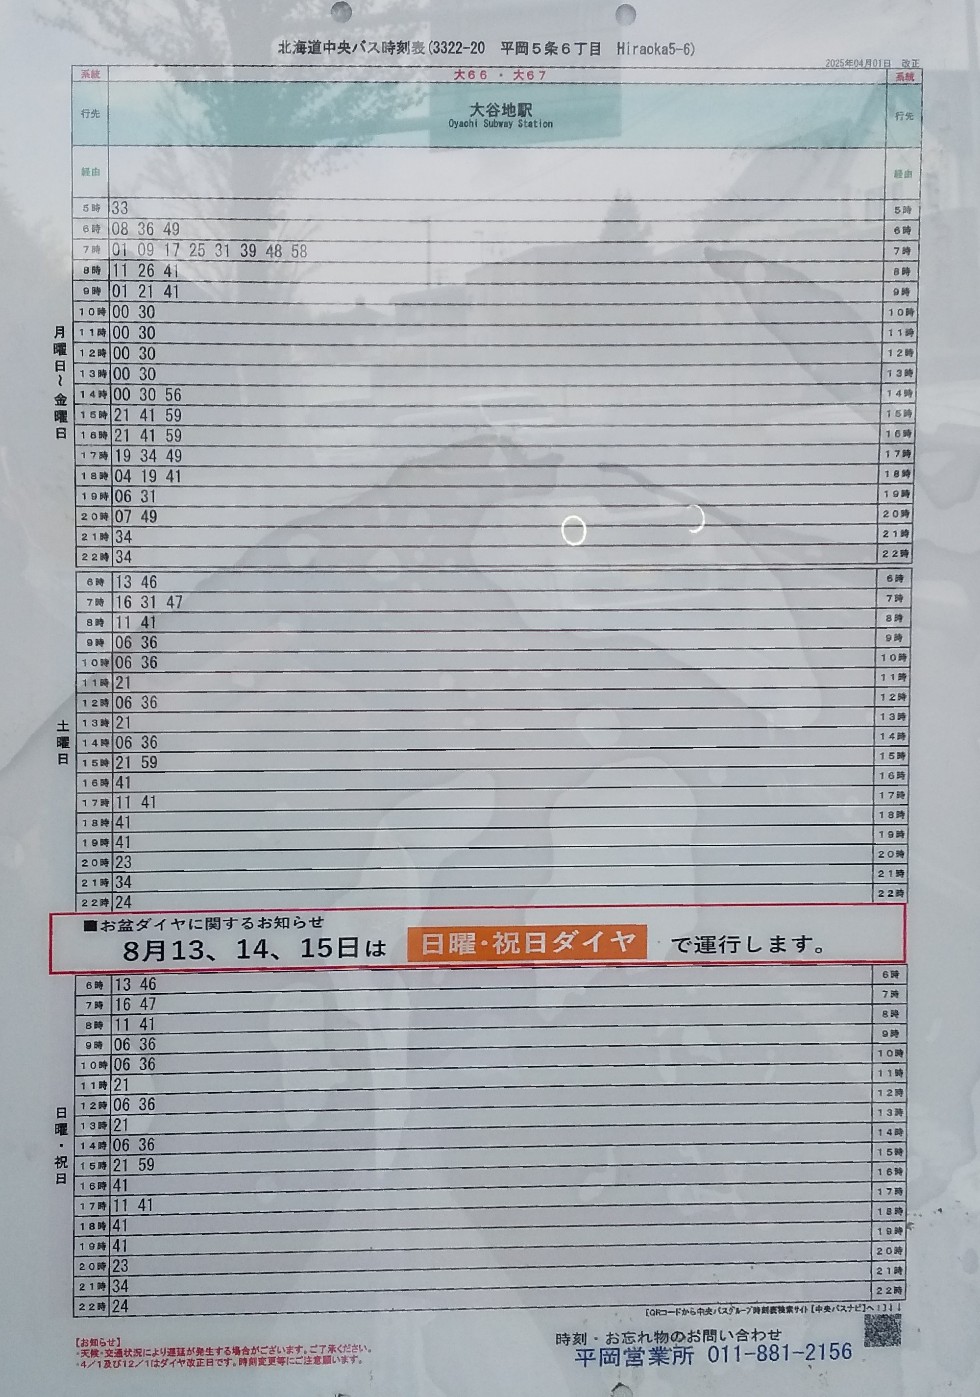 北海道中央バス時刻表(3322-20 平岡5条6丁目 Hiraoka5-6)
2025年04月01日 改正
系統 大66・大67 系統
行先 大谷地駅 行先
Oyachi Subway Station
経由 経由
月曜日～金曜日
5時 33 5時
6時 08 36 49 6時
7時 01 09 17 25 31 39 48 58 7時
8時 11 26 41 8時
9時 01 21 41 9時
10時 00 30 10時
11時 00 30 11時
12時 00 30 12時
13時 00 30 13時
14時 00 30 56 14時
15時 21 41 59 15時
16時 21 41 59 16時
17時 19 34 49 17時
18時 04 19 41 18時
19時 06 31 19時
20時 07 49 20時
21時 34 21時
22時 34 22時
土曜日
6時 13 46 6時
7時 16 31 47 7時
8時 11 41 8時
9時 06 36 9時
10時 06 36 10時
11時 21 11時
12時 06 36 12時
13時 21 13時
14時 06 36 14時
15時 21 59 15時
16時 41 16時
17時 11 41 17時
18時 41 18時
19時 41 19時
20時 23 20時
21時 34 21時
22時 24 22時
■お盆ダイヤに関するお知らせ
8月13、14、15日は 日曜・祝日ダイヤ で運行します。
日曜・祝日
6時 13 46 6時
7時 16 47 7時
8時 11 41 8時
9時 06 36 9時
10時 06 36 10時
11時 21 11時
12時 06 36 12時
13時 21 13時
14時 06 36 14時
15時 21 59 15時
16時 41 16時
17時 11 41 17時
18時 41 18時
19時 41 19時
20時 23 20時
21時 34 21時
22時 24 22時
【QRコードから中央バスグループ時刻表検索サイト【中央バスナビ】へ！↓↓↓
【お知らせ】
・天候・交通状況により遅延が発生する場合がございます。ご了承ください。
・4/1及び12/1はダイヤ改正日です。時刻変更等にご注意願います。
時刻・お忘れ物のお問い合わせ
平岡営業所 011-881-2156